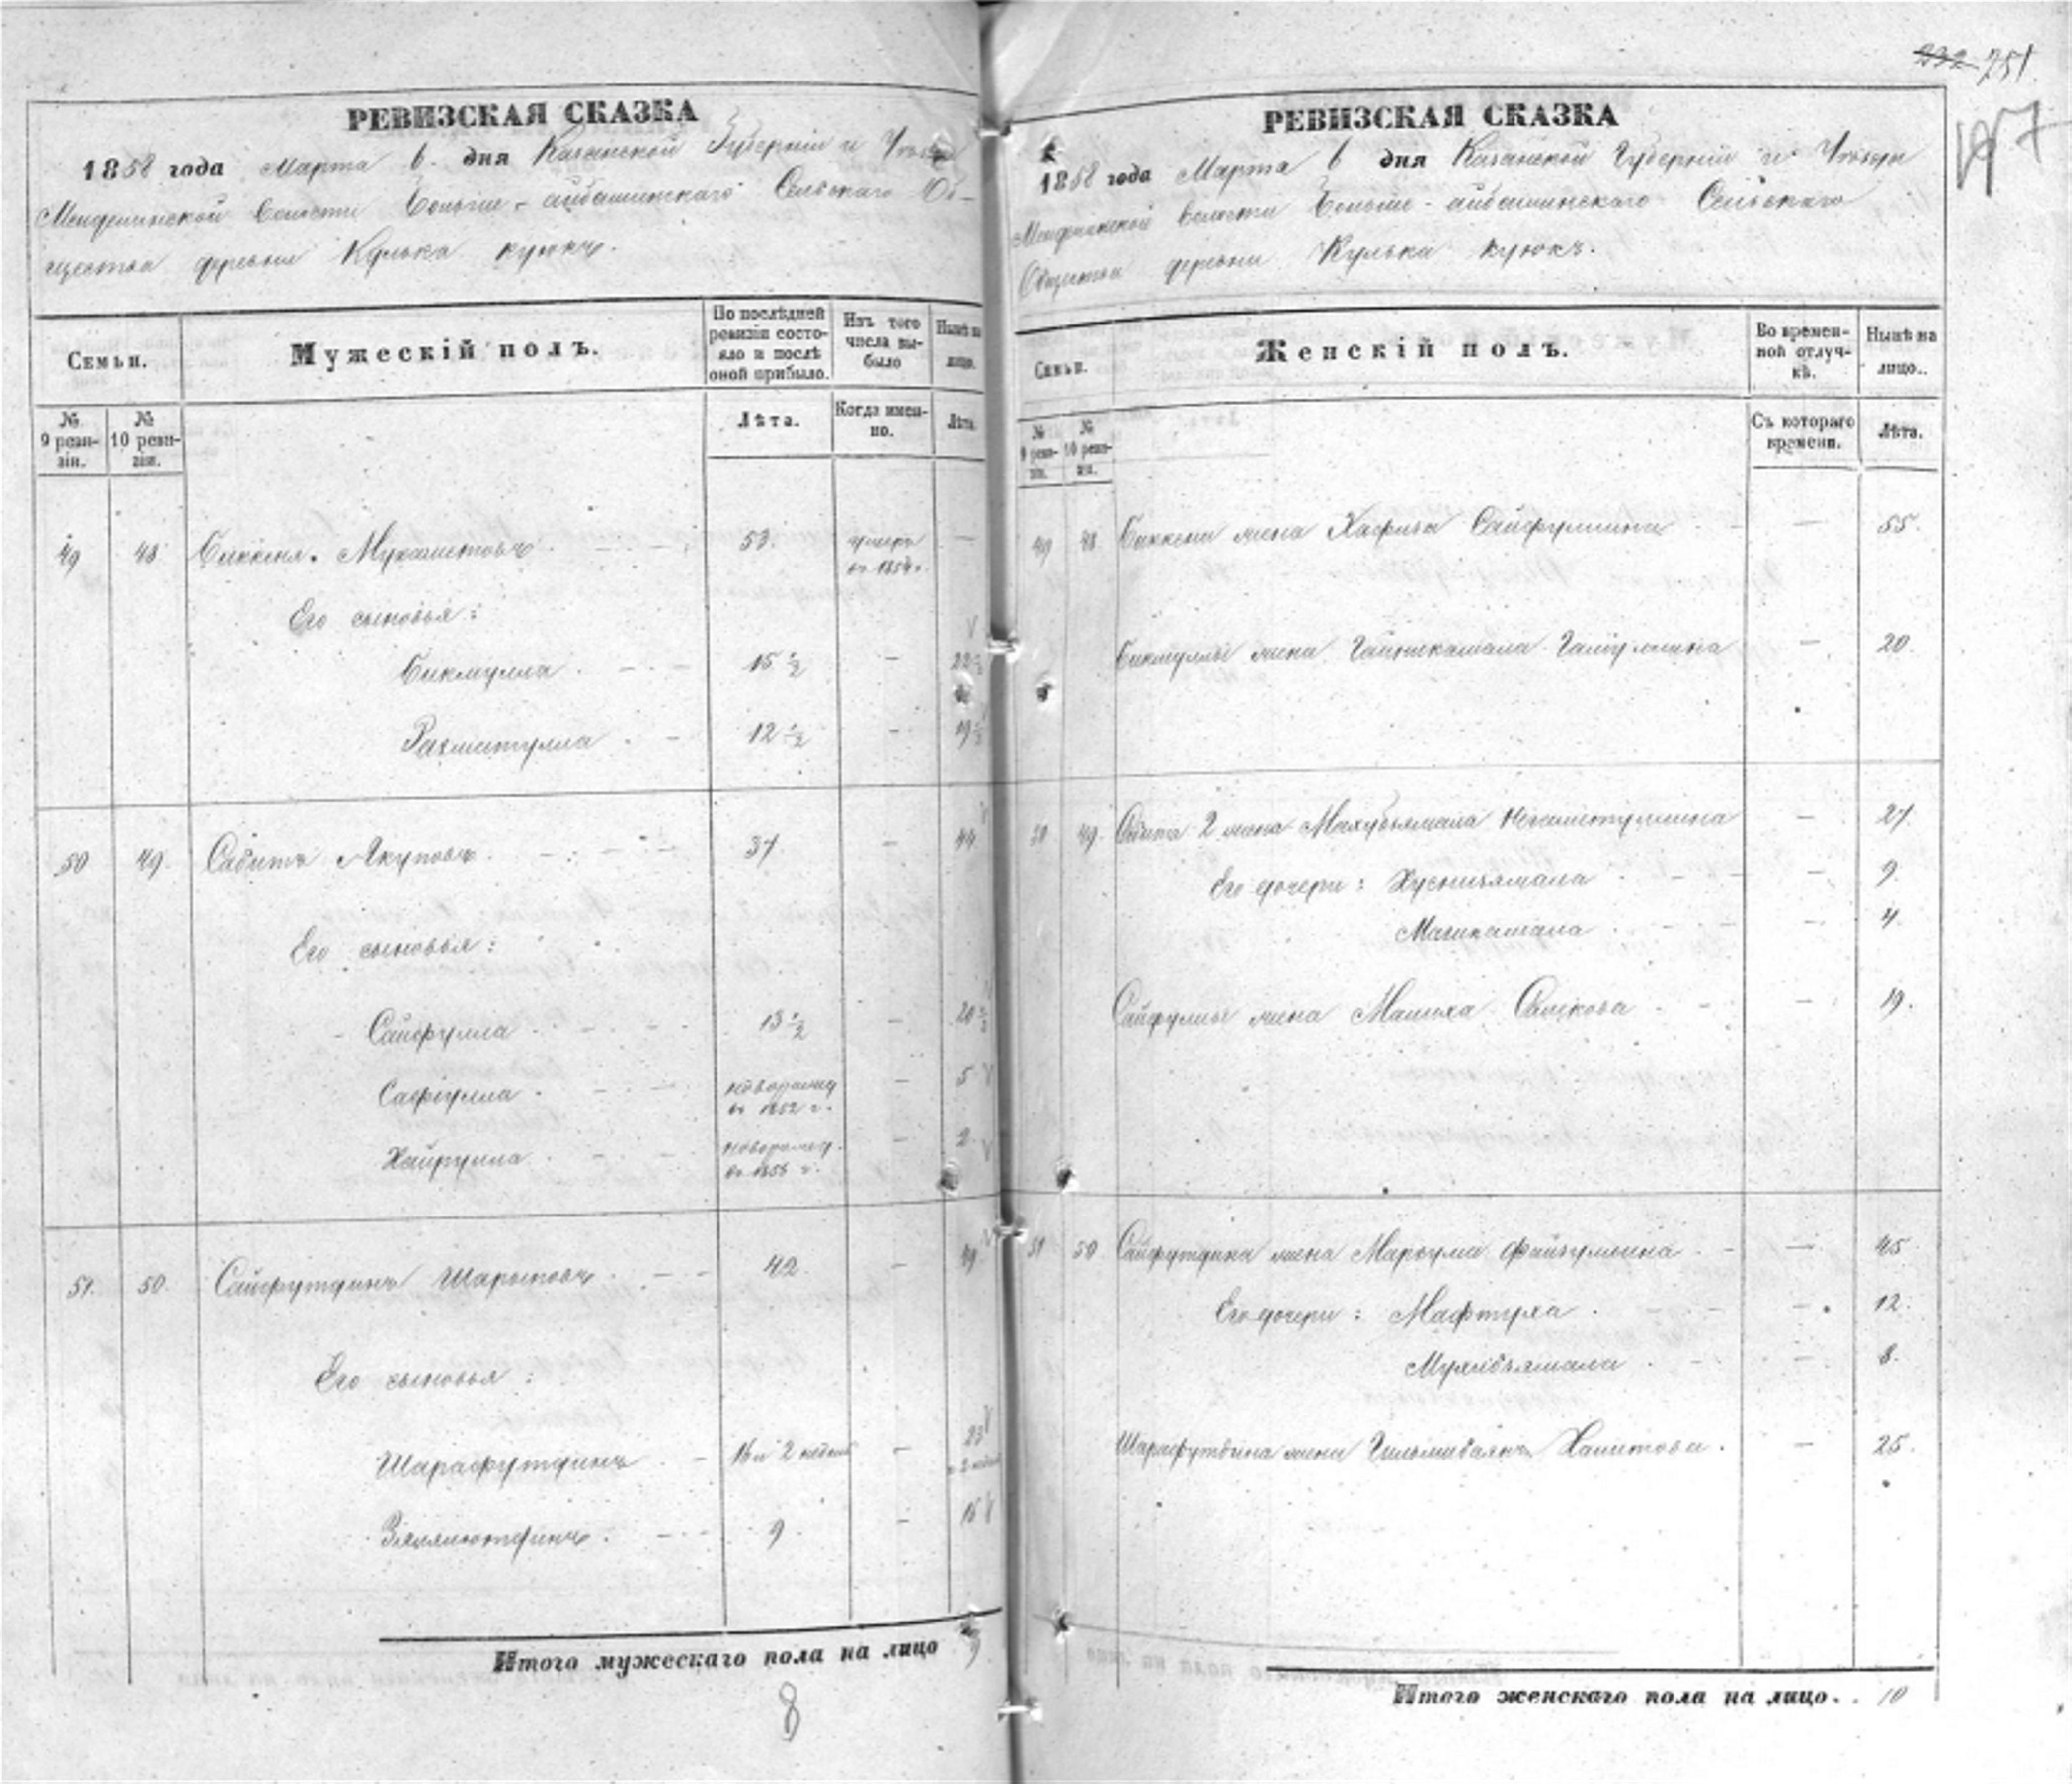 232 751
197
РЕВИЗСКАЯ СКАЗКА
1858 года Марта 6 дня Казанской Губерніи и Уѣзда
Менделинской Волости Больше-айбашинскаго Сельскаго Об-
щества деревни Кулька куюкъ.
Семьи.
Мужескій полъ.
По послѣдней ревизіи состояло и послѣ оной прибыло.
Изъ того числа выбыло
Нынѣ на лицо.
№ 9 ревизіи.
№ 10 ревизіи.
Лѣта.
Когда именно.
Лѣта.
49 48 Биккеня Мухаметовъ 53. умеръ въ 1854 г. —
Его сыновья:
Бикмулла 15 ½ — 22 ½
Рахматулла 12 ½ — 19 ½
50 49. Сабитъ Якуповъ. 37 — 44
Его сыновья:
Сайфулла 13 ½ — 20 ½
Сафіулла новорожд въ 1852 г. — 5
Хайрулла новорожд. — 2
51. 50. Сайфутдинъ Шариповъ 42. — 49
Его сыновья:
Шарафутдинъ 16 и 2 недѣли — 23 и 2 недѣли
9 — 16
Итого мужескаго пола на лицо 9
8
РЕВИЗСКАЯ СКАЗКА
1858 года Марта 6 дня Казанской Губерніи и Уѣзда
Менделинской Волости Больше-айбашинскаго Сельскаго
Общества деревни Кулька куюкъ.
Семьи.
Женскій полъ.
Во временной отлучкѣ.
Нынѣ на лицо..
№ 9 ревизіи.
№ 10 ревизіи.
Съ котораго времени.
Лѣта.
49 48 Биккени жена Хафиза Сайфуллина — 55.
Бикмуллы жена — 20.
50 49. Сабита 2 жена — 27
Его дочери: Хуснизямала — 9.
— 4.
Сайфуллы жена — 19.
51 50. Сайфутдина жена Файзуллина — 45
Его дочери: Мафтуха — 12.
— 8.
Шарафутдина жена Хамитова. — 25.
Итого женскаго пола на лицо. . 10